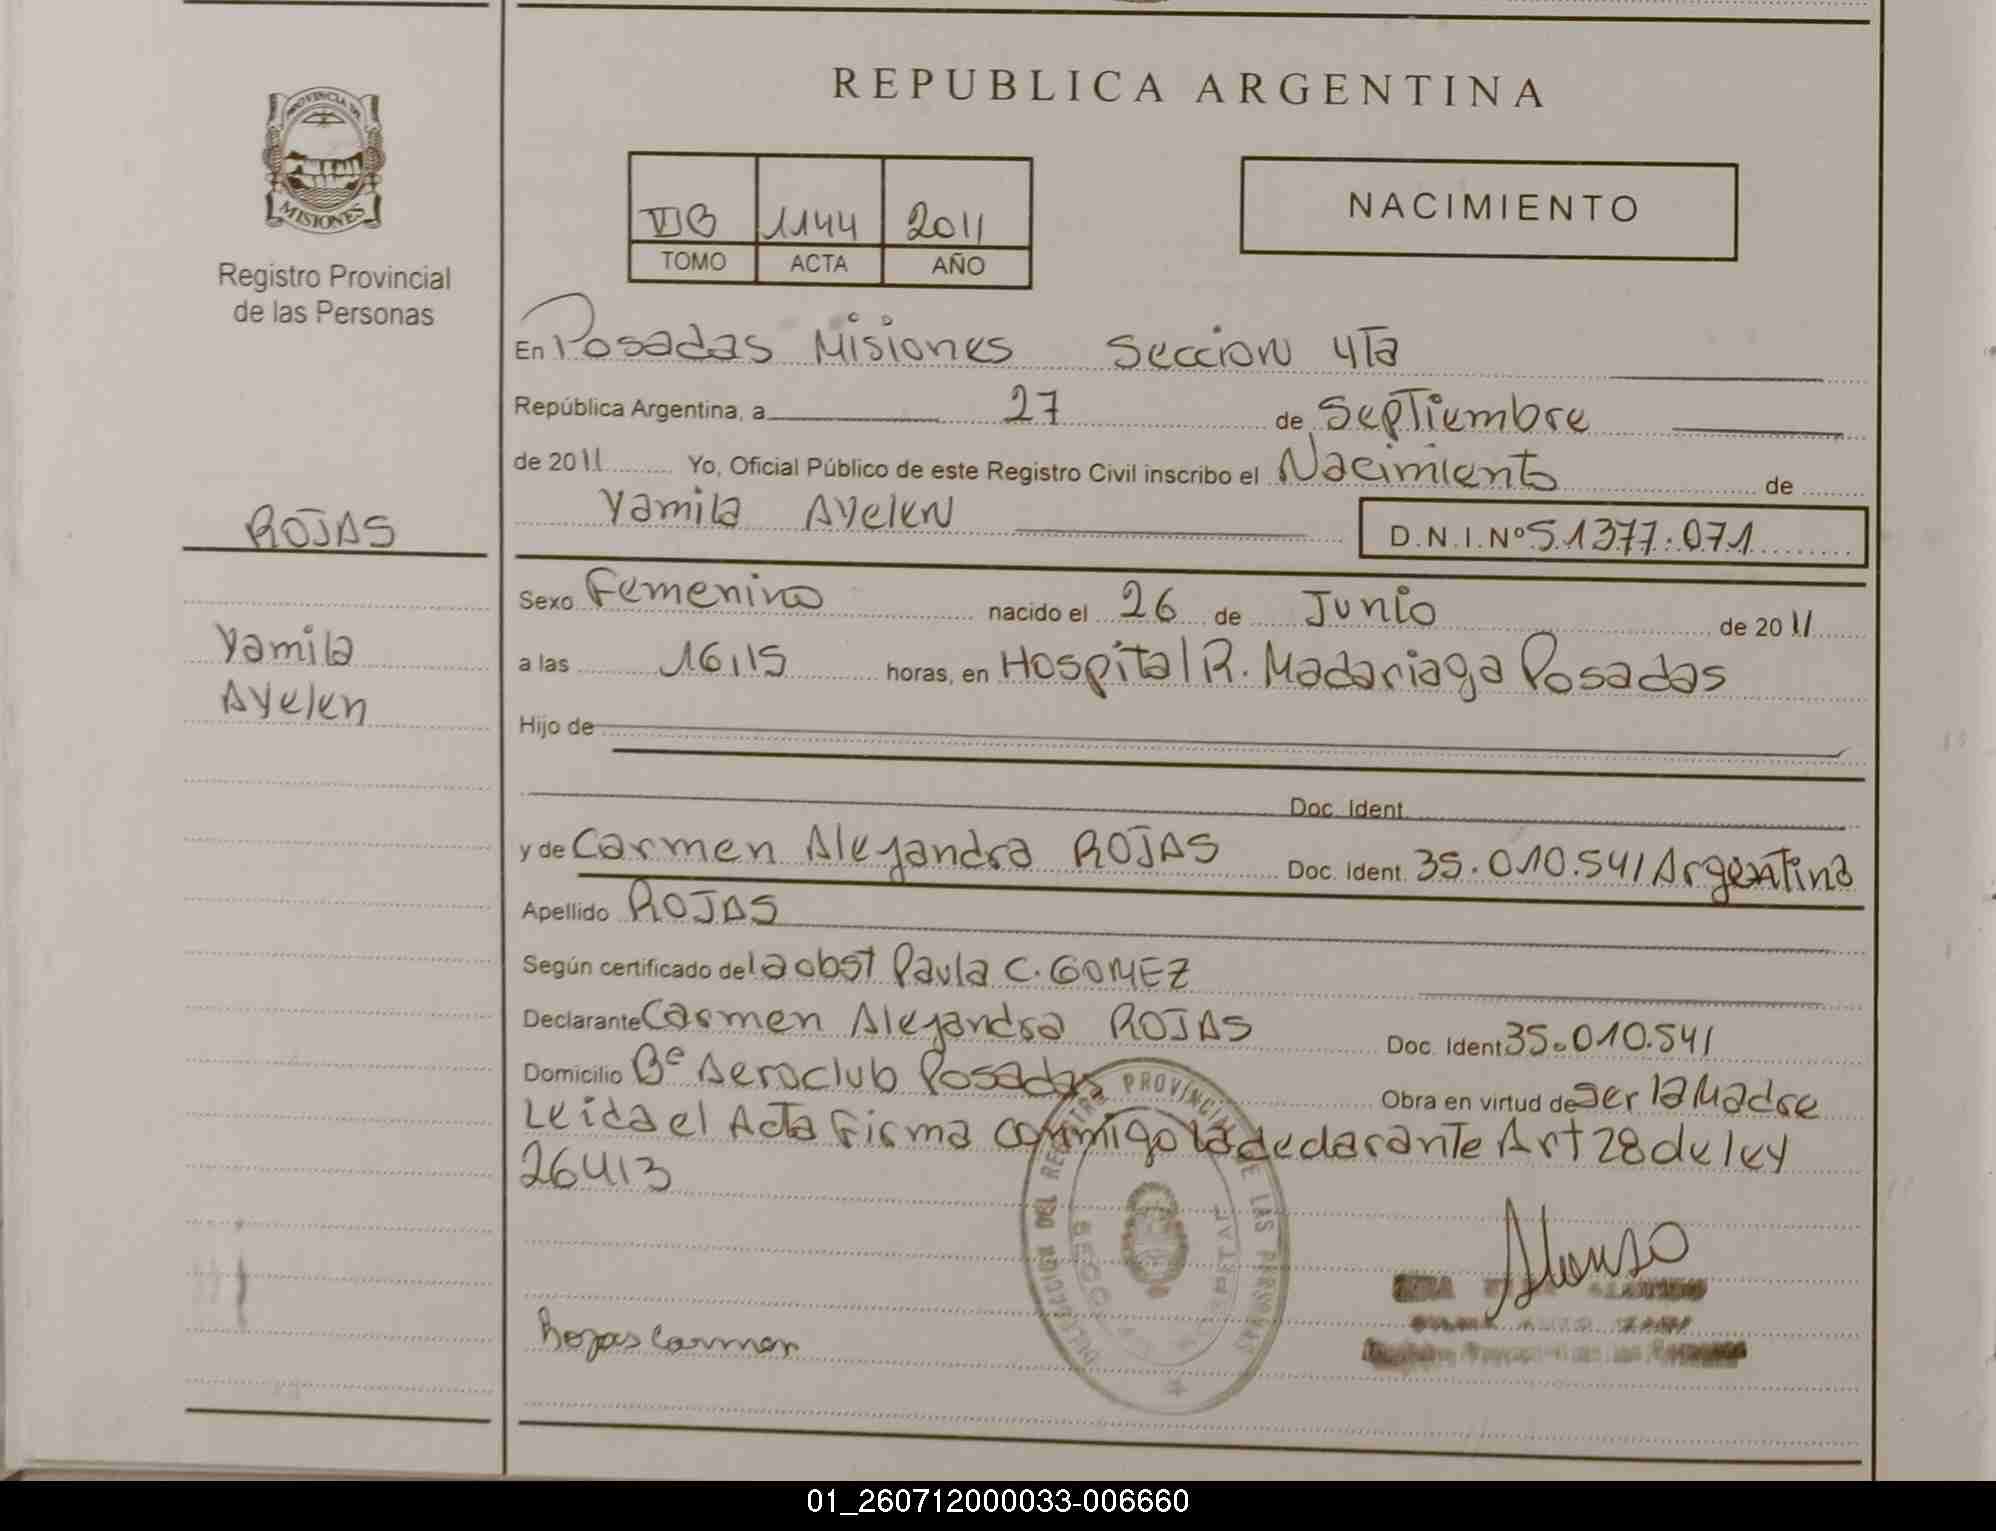 REPUBLICA ARGENTINA
PROVINCIA DE
MISIONES
Registro Provincial
de las Personas
VIB 1144 2011
TOMO ACTA AÑO
NACIMIENTO
En Posadas Misiones Seccion 4Ta
República Argentina, a 27 de Septiembre
de 2011 Yo, Oficial Público de este Registro Civil inscribo el Nacimiento de
Yamila Ayelen D.N.I.Nº 51377.071
ROJAS
Yamila
Ayelen
Sexo Femenino nacido el 26 de Junio de 2011
a las 16,15 horas, en Hospital R. Madariaga Posadas
Hijo de
Doc. Ident.
y de Carmen Alejandra ROJAS Doc. Ident. 35.010.541 Argentina
Apellido ROJAS
Según certificado de la obst Paula C. GOMEZ
Declarante Carmen Alejandra ROJAS Doc. Ident 35.010.541
Domicilio Bº Aeroclub Posadas Obra en virtud de ser la Madre
Leida el Acta Firma conmigo la declarante Art 28 de ley
26413
DEL REGISTRO PROVINCIAL DE LAS PERSONAS
Alonso
Rojas Carmen
01_260712000033-006660